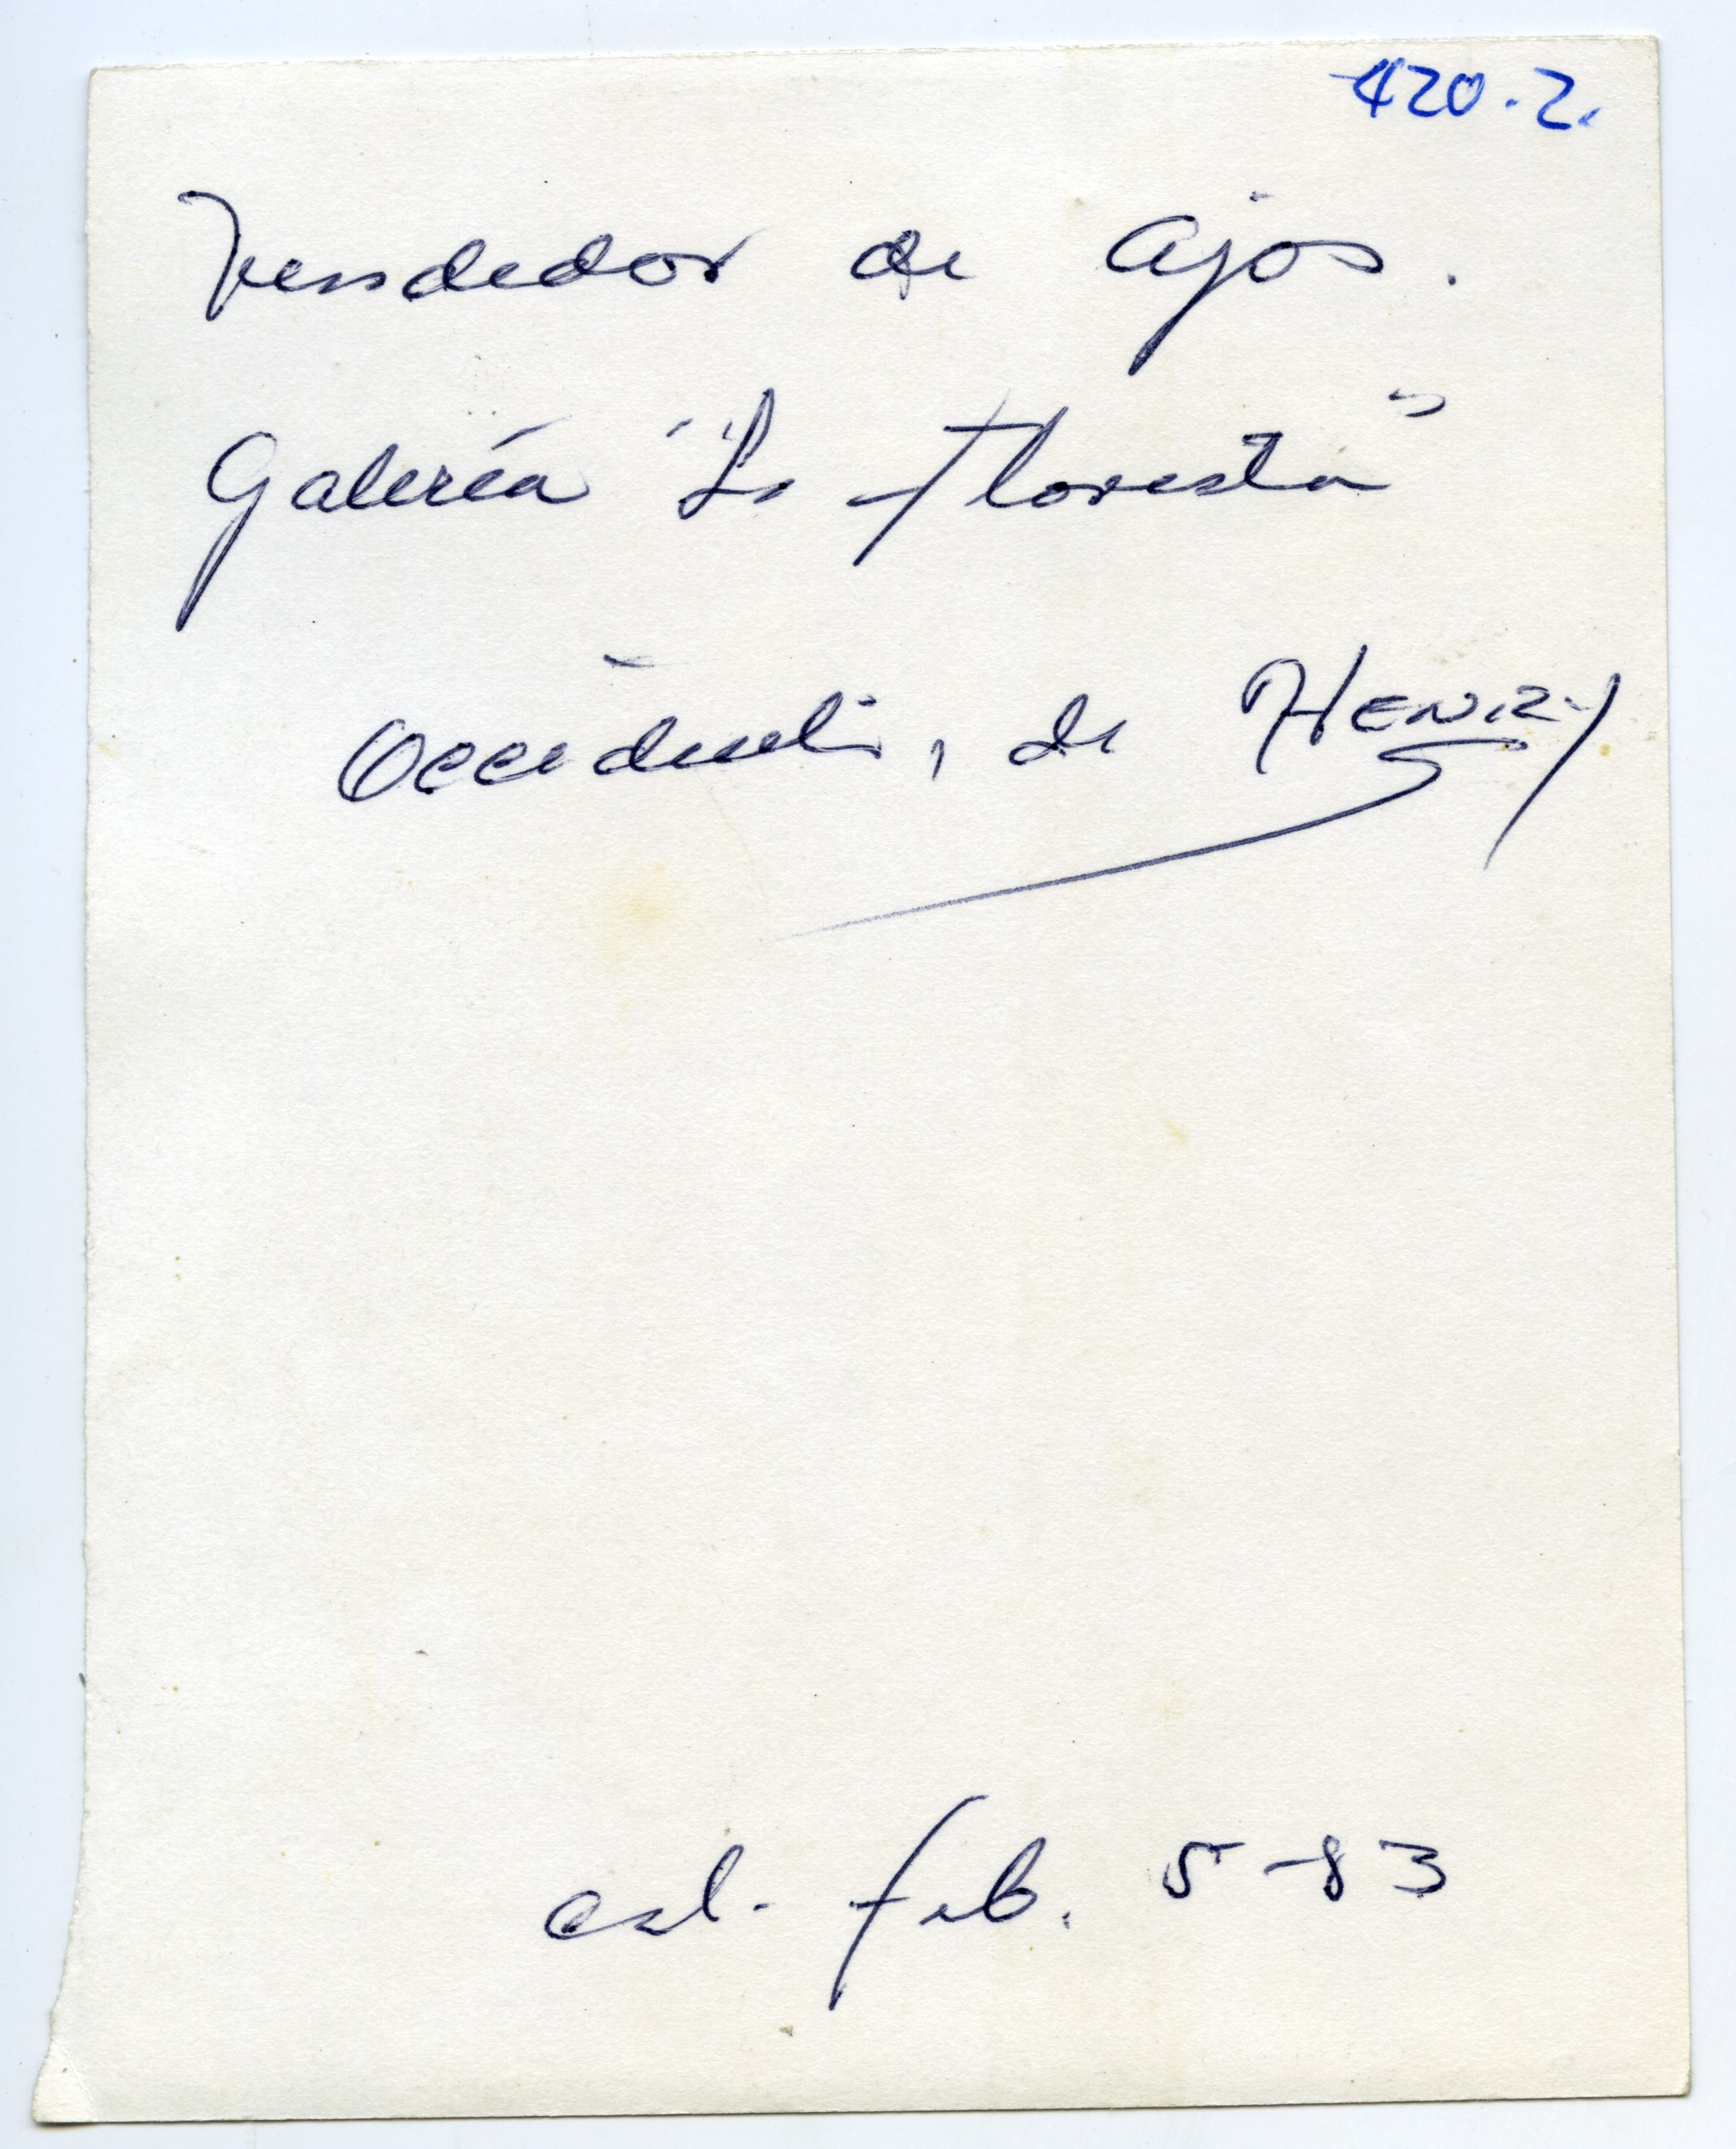 420.2.
Vendedor de ajos.
Galería "La Floresta"
Occidente, de HENRY
Cal. feb. 5-83